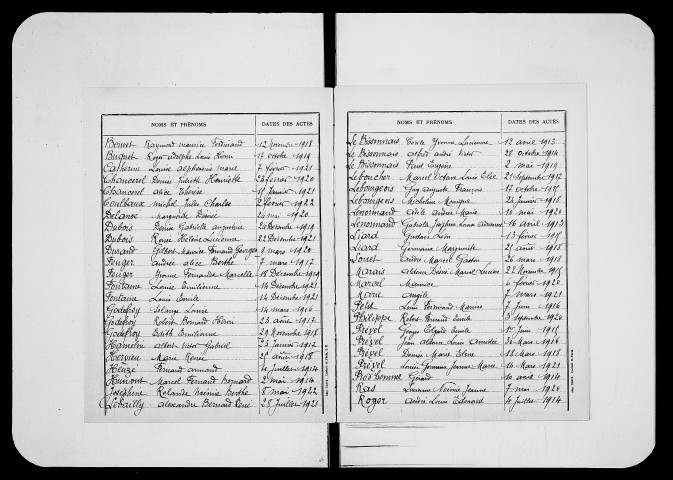 NOMS ET PRÉNOMS DATES DES ACTES
Benoist Raymond Maurice Ferdinand 12 Novembre 1918
Buquet Roger Adolphe Louis Henri 17 octobre 1919
Catherine Louise Alphonsine Marie 7 février 1921
Chancerel Denise Juliette Henriette 23 février 1920
Chancerel Alice Thérèse 18 Janvier 1921
Coulbaux Michel Jules Charles 2 février 1922
Delanoe Marguerite Désirée 20 mai 1920
Dubois Denise Gabrielle Augustine 20 Décembre 1919
Dubois Renée Hélène Lucienne 22 Décembre 1921
Durand Gilbert Maurice Fernand Georges 9 mars 1920
Feuger Andrée Alice Berthe 7 mars 1917
Feuger Yvonne Fernande Marcelle 18 Décembre 1919
Fontaine Louise Emilienne 14 Décembre 1921
Fontaine Louis Emile 14 Décembre 1921
Godefroy Solange Louise 14 mars 1916
Godefroy Robert Bernard Henri 23 août 1917
Godefroy Edith Emilienne 29 Novembre 1918
Hamelin Albert Victor Gabriel 23 Janvier 1917
Hervieu Marie Renée 25 août 1918
Heuzé Fernand Armand 4 Juillet 1914
Hunout Marcel Fernand Bernard 2 mai 1914
Joséphine Rolande Noémie Berthe 8 mai 1922
Lebailly Alexandre Bernard René 28 Juillet 1921
NOMS ET PRÉNOMS DATES DES ACTES
Le Bissonnais Yvonne Lucienne 12 avril 1913
Le Bissonnais Alfred André Victor 28 octobre 1914
Le Bissonnais Paul Eugène 2 mai 1919
Leboucher Marcel Octave Louis Elie 21 Septembre 1912
Lebourgeois Guy Auguste François 17 octobre 1915
Lebourgeois Micheline Monique 23 Janvier 1918
Lenormand Odile Andrée Marie 10 mai 1920
Lenormand Gabrielle 16 avril 1913
Liard Gustave Léon 13 février 1915
Liard Germaine Marguerite 21 août 1918
Louet André Marcel Gaston 26 mars 1918
Marais Désiré Marcel Lucien 22 Novembre 1915
Marcel Maurice 6 février 1920
Marie Angèle 7 mars 1921
Petit Louis Ferdinand 7 Juin 1916
Philippe Robert Fernand Emile 3 Septembre 1920
Prével Georges Elysée Emile 1er Juin 1915
Prével Jean Louis Amédée 30 mars 1916
Prével Denise Marie Hélène 18 mars 1918
Prével Louise Germaine Jeanne Marie 14 mars 1921
Prod'homme Gérard 10 août 1914
Ras Noémie Jeanne 7 mai 1920
Roger André Louis Edouard 4 Juillet 1914